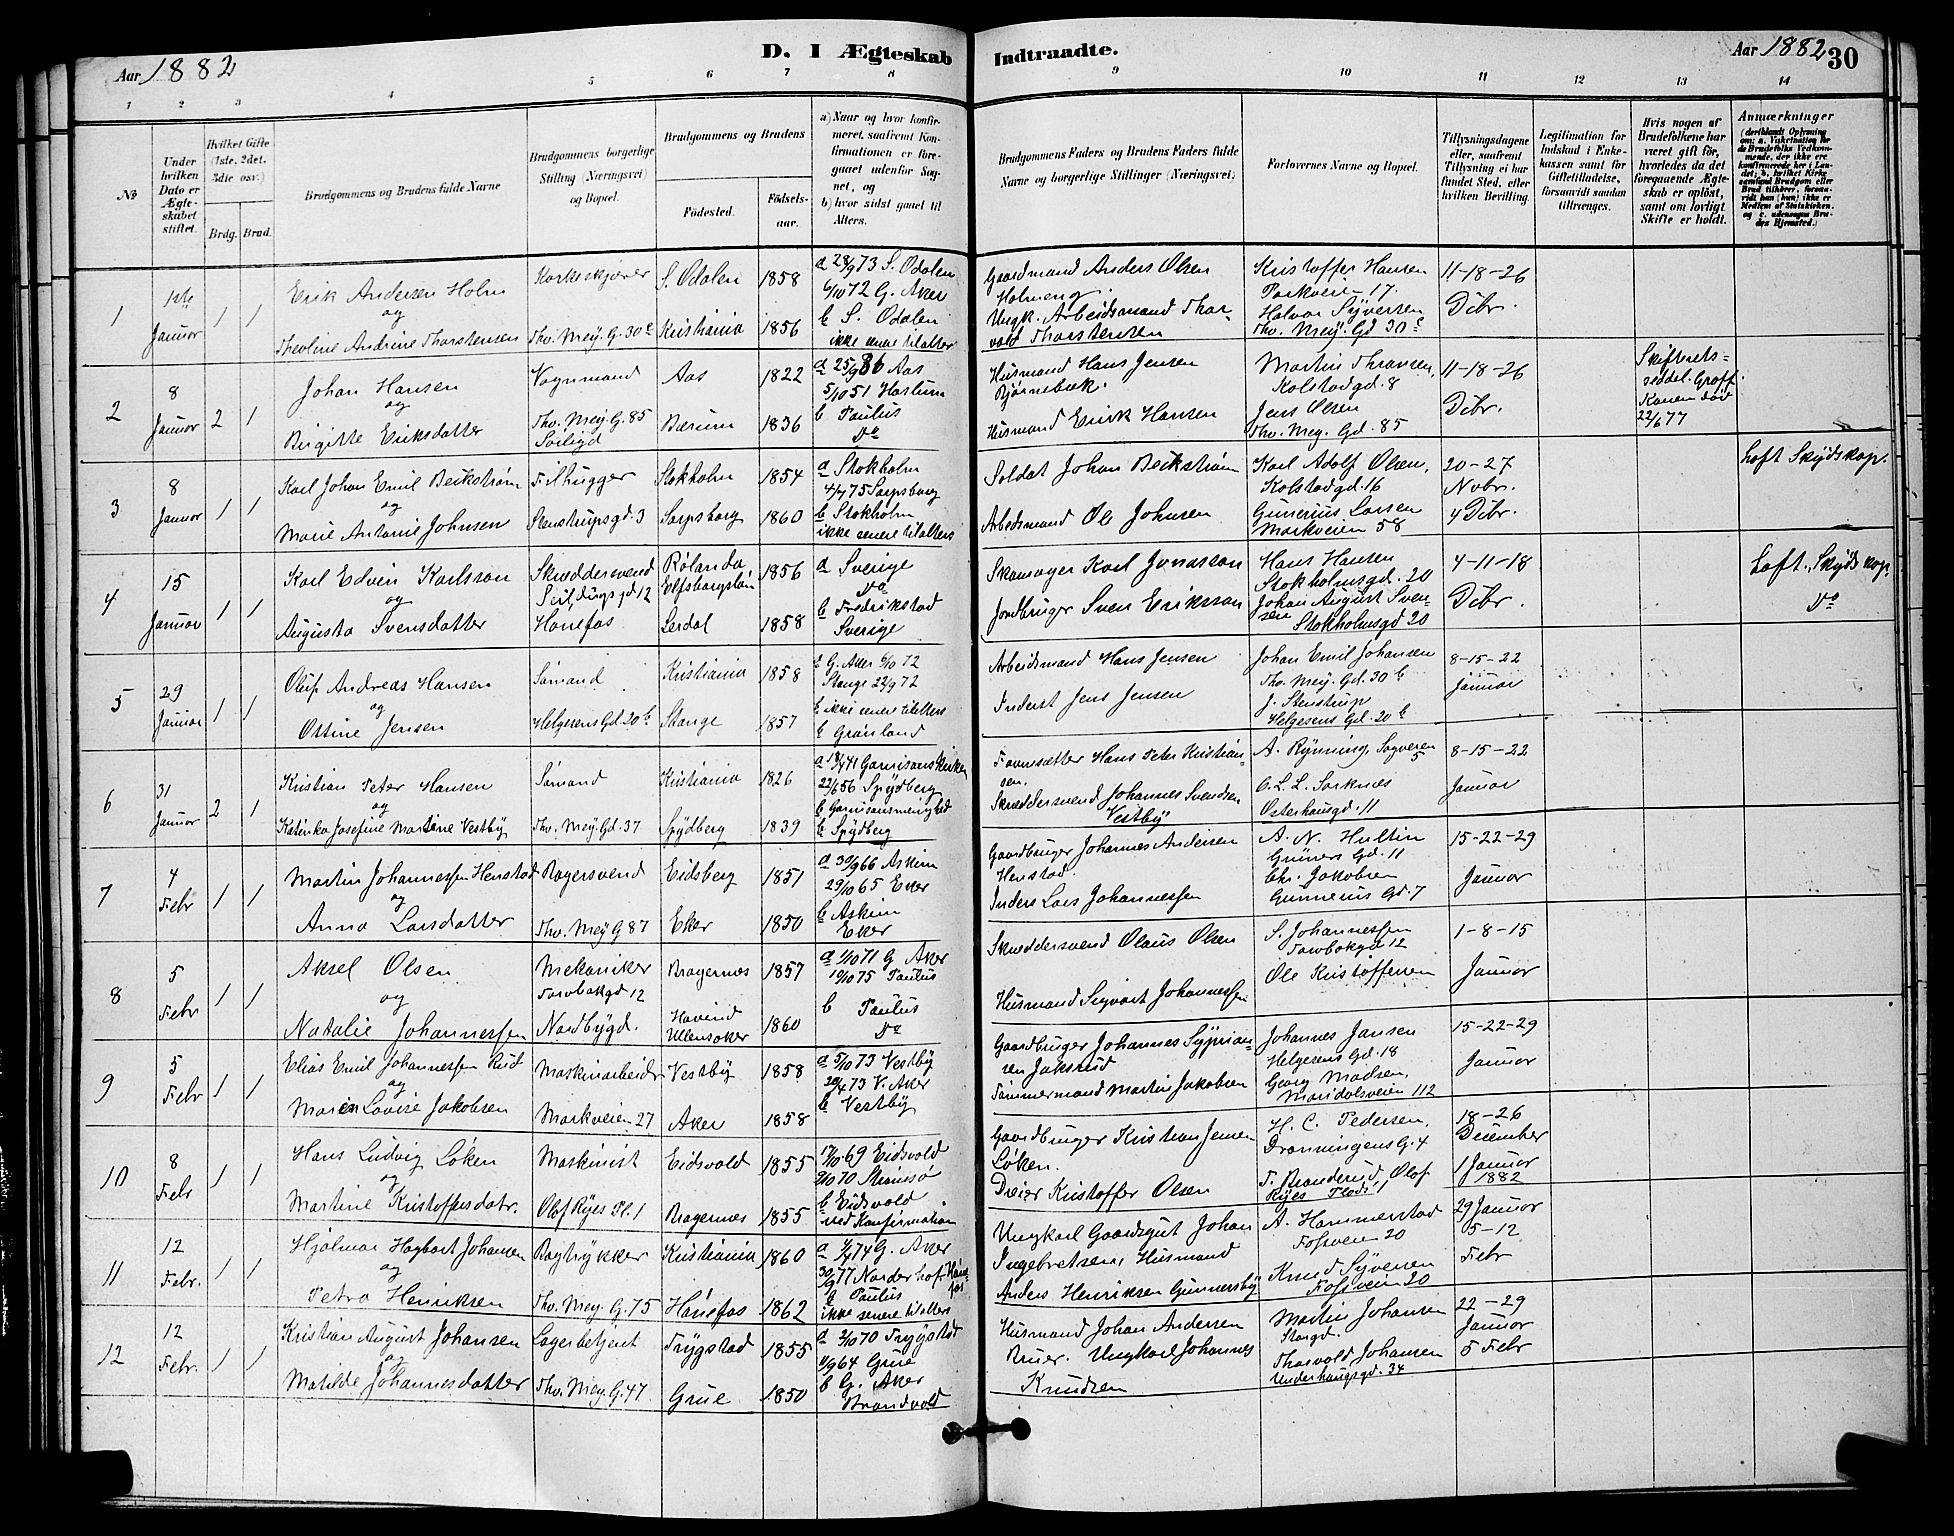 Aar 1882
D. I Ægteskab Indtraadte.
Aar 1882 30
1 2 3 4 5 6 7 8 9 10 11 12 13 14
No
Under hvilken Dato er Ægteskabet stiftet.
Hvilket Gifte (1ste, 2det, 3die osv.)
Brdg. Brud.
Brudgommens og Brudens fulde Navne
Brudgommens borgerlige Stilling (Næringsvei) og Bopæl.
Brudgommens og Brudens
Födested.
Födsels-aar.
a) Naar og hvor konfirmeret, saafremt Konfirmationen er foregaaet udenfor Sognet, og
b) hvor sidst gaaet til Alters.
Brudgommens Faders og Brudens Faders fulde Navne og borgerlige Stillinger (Næringsvei)
Forlovernes Navne og Bopæl.
Tillysningsdagene eller, saafremt Tillysning ei har fundet Sted, efter hvilken Bevilling.
Legitimation for Indskud i Enkekassen samt for Giftetilladelse, forsaavidt saadan tiltrænges.
Hvis nogen af Brudefolkene har været gift før, hvorledes da det foregaaende Ægteskab er oplöst, samt om lovligt Skifte er holdt.
Anmærkninger
1
1ste Januar
1 1
Erik Andersen Holm
og
Theoline Andrine Thorstensen
Korkeskjærer
Thv. Mey. G. 30c
S. Odalen
Kristiania
1858
1856
a 28/9 73 S. Odalen
6/10 72 G. Aker
b S. Odalen
ikke senere til alters
Gaardmand Anders Olsen
Holmeng.
Ungk. Arbeidsmand Thor-
vald Thorstensen
Kristoffer Hansen
Parkveien 17.
Halvor Syversen
Thv. Mey. Gd 30c
11-18-26
Dcbr.
2
8 Januar
2 1
Johan Hansen
og
Birgitte Eriksdatter
Vognmand
Thv. Mey. G. 85
Aas
Bærum
1822
1836
a 25/9 36 Aas
5/10 51 Haslum
b Paulus
Do
Husmand Hans Jensen
Bjørnebæk.
Husmand Erick Hansen
Kolstadgd. 8
Jens Olsen
Thv. Mey. Gd. 85
11-18-26
Dcbr.
Skifterets-
seddel.
Konen død
22/6 77
3
8 Januar
1 1
Karl Johan Emil Beckstrøm
og
Marie Antonie Johnsen
Filhugger
Stenstrupsgd. 3
Stokholm
Sarpsborg
1854
1860
a Stokholm
4/7 75 Sarpsborg
b Stokholm
ikke senere til alters
Soldat Johan Beckstrøm
Arbeidsmand Ole Johnsen
Karl Adolf Olsen,
Kolstadgd. 16
Gunerius Larsen
Markveien 58
20-27
Novbr.
4 Dcbr.
Loft Skydskop.
4
15 Januar
1 1
Karl Edvin Karlsson
og
Augusta Svensdatter
Skræddersvend
Hønefos
Rølanda
Elfsborgslän
Lerdal
1856
1858
a Sverige
Do
b Fredrikstad
Sverige
Skomager Karl Jonasson
Jordbruger Sven Eriksson
Hans Hansen
Stokholmsgd. 20
Johan August Sven-
sen
Stokholmsgd 20
4-11-18
Dcbr.
Loft. Skydskop.
Do
5
29 Januar
1 1
Oluf Andreas Hansen
og
Ottine Jensen
Sømand
Helgesens Gd. 20b
Kristiania
Stange
1858
1857
a G. Aker 6/10 72
Stange 22/9 72
b ikke senere til alters
b Grønland
Arbeidsmand Hans Jensen
Inderst Jens Jensen
Johan Emil Johansen
Thv. Mey. Gd. 30b
J. Stenstrup
Helgesens Gd. 20b
8-15-22
Januar
6
31 Januar
2 1
Kristian Peter Hansen
og
Katinka Josefine Martine Vestby
Sømand
Thv. Mey. Gd. 37
Kristiania
Spydberg
1826
1839
Garnisonskirken
22/6 56 Spydberg
b Garnisonsmenighed
b Spydberg
Hans Peter Kristian-
sen.
Skræddersvend Johannes Svendsen
Vestby
A. Rynning, Sagveien
5
O. L. L. Sorknes
Osterhausgd. 11
8-15-22
Januar
7
4 Febr
1 1
Martin Johannessen Henstad
og
Anna Larsdatter
Bagersvend
Thv. Mey. G 87
Eidsberg
Eker
1851
1850
a 30/9 66 Askim
29/10 65 Eker
b Askim
Eker
Gaardbruger Johannes Andersen
Henstad.
Inders Lars Johannessen
A. N. Hultin
Grüners Gd. 11
Chr. Jakobsen
Gunerius Gd. 7
15-22-29
Januar
8
5 Febr
1 1
Aksel Olsen
og
Natalie Johannessen
Mekaniker
Torvbakgd 12
Nordbygd.
Bragernes
Hovind
Ullensaker
1857
1860
a 1/10 71 G. Aker
10/10 75 Paulus
b Paulus
Do
Skræddersvend Olaus Olsen
Husmand Sigvart Johannessen
S. Johannessen
Torvbakgd 12
Ole Kristoffersen
1-8-15
Januar
9
5 Febr
1 1
Elias Emil Johannessen Rud
og
Maren Lovise Jakobsen
Maskinarbeider
Markveien 27
Vestby
Aker
1858
1858
a 5/10 73 Vestby
20/4 73 V. Aker
b Vestby
Gaardbruger Johannes Syprian-
sen Jaksrud
Tømmermand Martin Jakobsen
Johannes Jansen
Helgesens Gd. 18
Georg Madsen,
Maridalsveien 112
15-22-29
Januar
10
8 Febr
1 1
Hans Ludvig Løken
og
Martine Kristoffersdatr.
Maskinist
Olaf Ryes Pl. 1
Eidsvold
Bragernes
1855
1855
17/10 69 Eidsvold
9/10 70 Strømsø
b Eidsvold
ved Konfirmation
Gaardbruger Kristian Jensen
Løken.
Dreier Kristoffer Olsen
H. C. Pedersen,
Dronningens G. 4
F. Branderud, Olaf
Ryes Plads 1
18-26
December
1 Januar
1882
11
12 Febr.
1 1
Hjalmar Hagbart Johansen
og
Petra Henriksen
Bogtrykker
Thv. Mey. G. 75
Kristiania
Hønefos
1860
1862
a 1/4 74 G. Aker
30/9 77 Norderhof Hønefos
b Paulus
ikke senere til alters
Ungkarl Gaardsgut Johan
Ingebretsen, Husmand
Anders Henriksen Gunnersby
A. Hammerstad
Fossveien 20
Knud Syversen
Fossveien 20
29 Januar
5-12
Febr
12
12 Febr.
1 1
Kristian August Johansen
og
Matilde Johannesdatter
Lagerbetjent
Thv. Mey. G. 47
Trygstad
Grue
1855
1850
a 2/10 70 Trygstad
11/9 64 Grue
b G. Aker
Brandvold
Husmand Johan Andersen
Bruer. Ungkarl Johannes
Knudsen
Martin Johansen
Storgd.
Thorvald Johansen
Underhaugsgd. 34
22-29
Januar
5 Febr